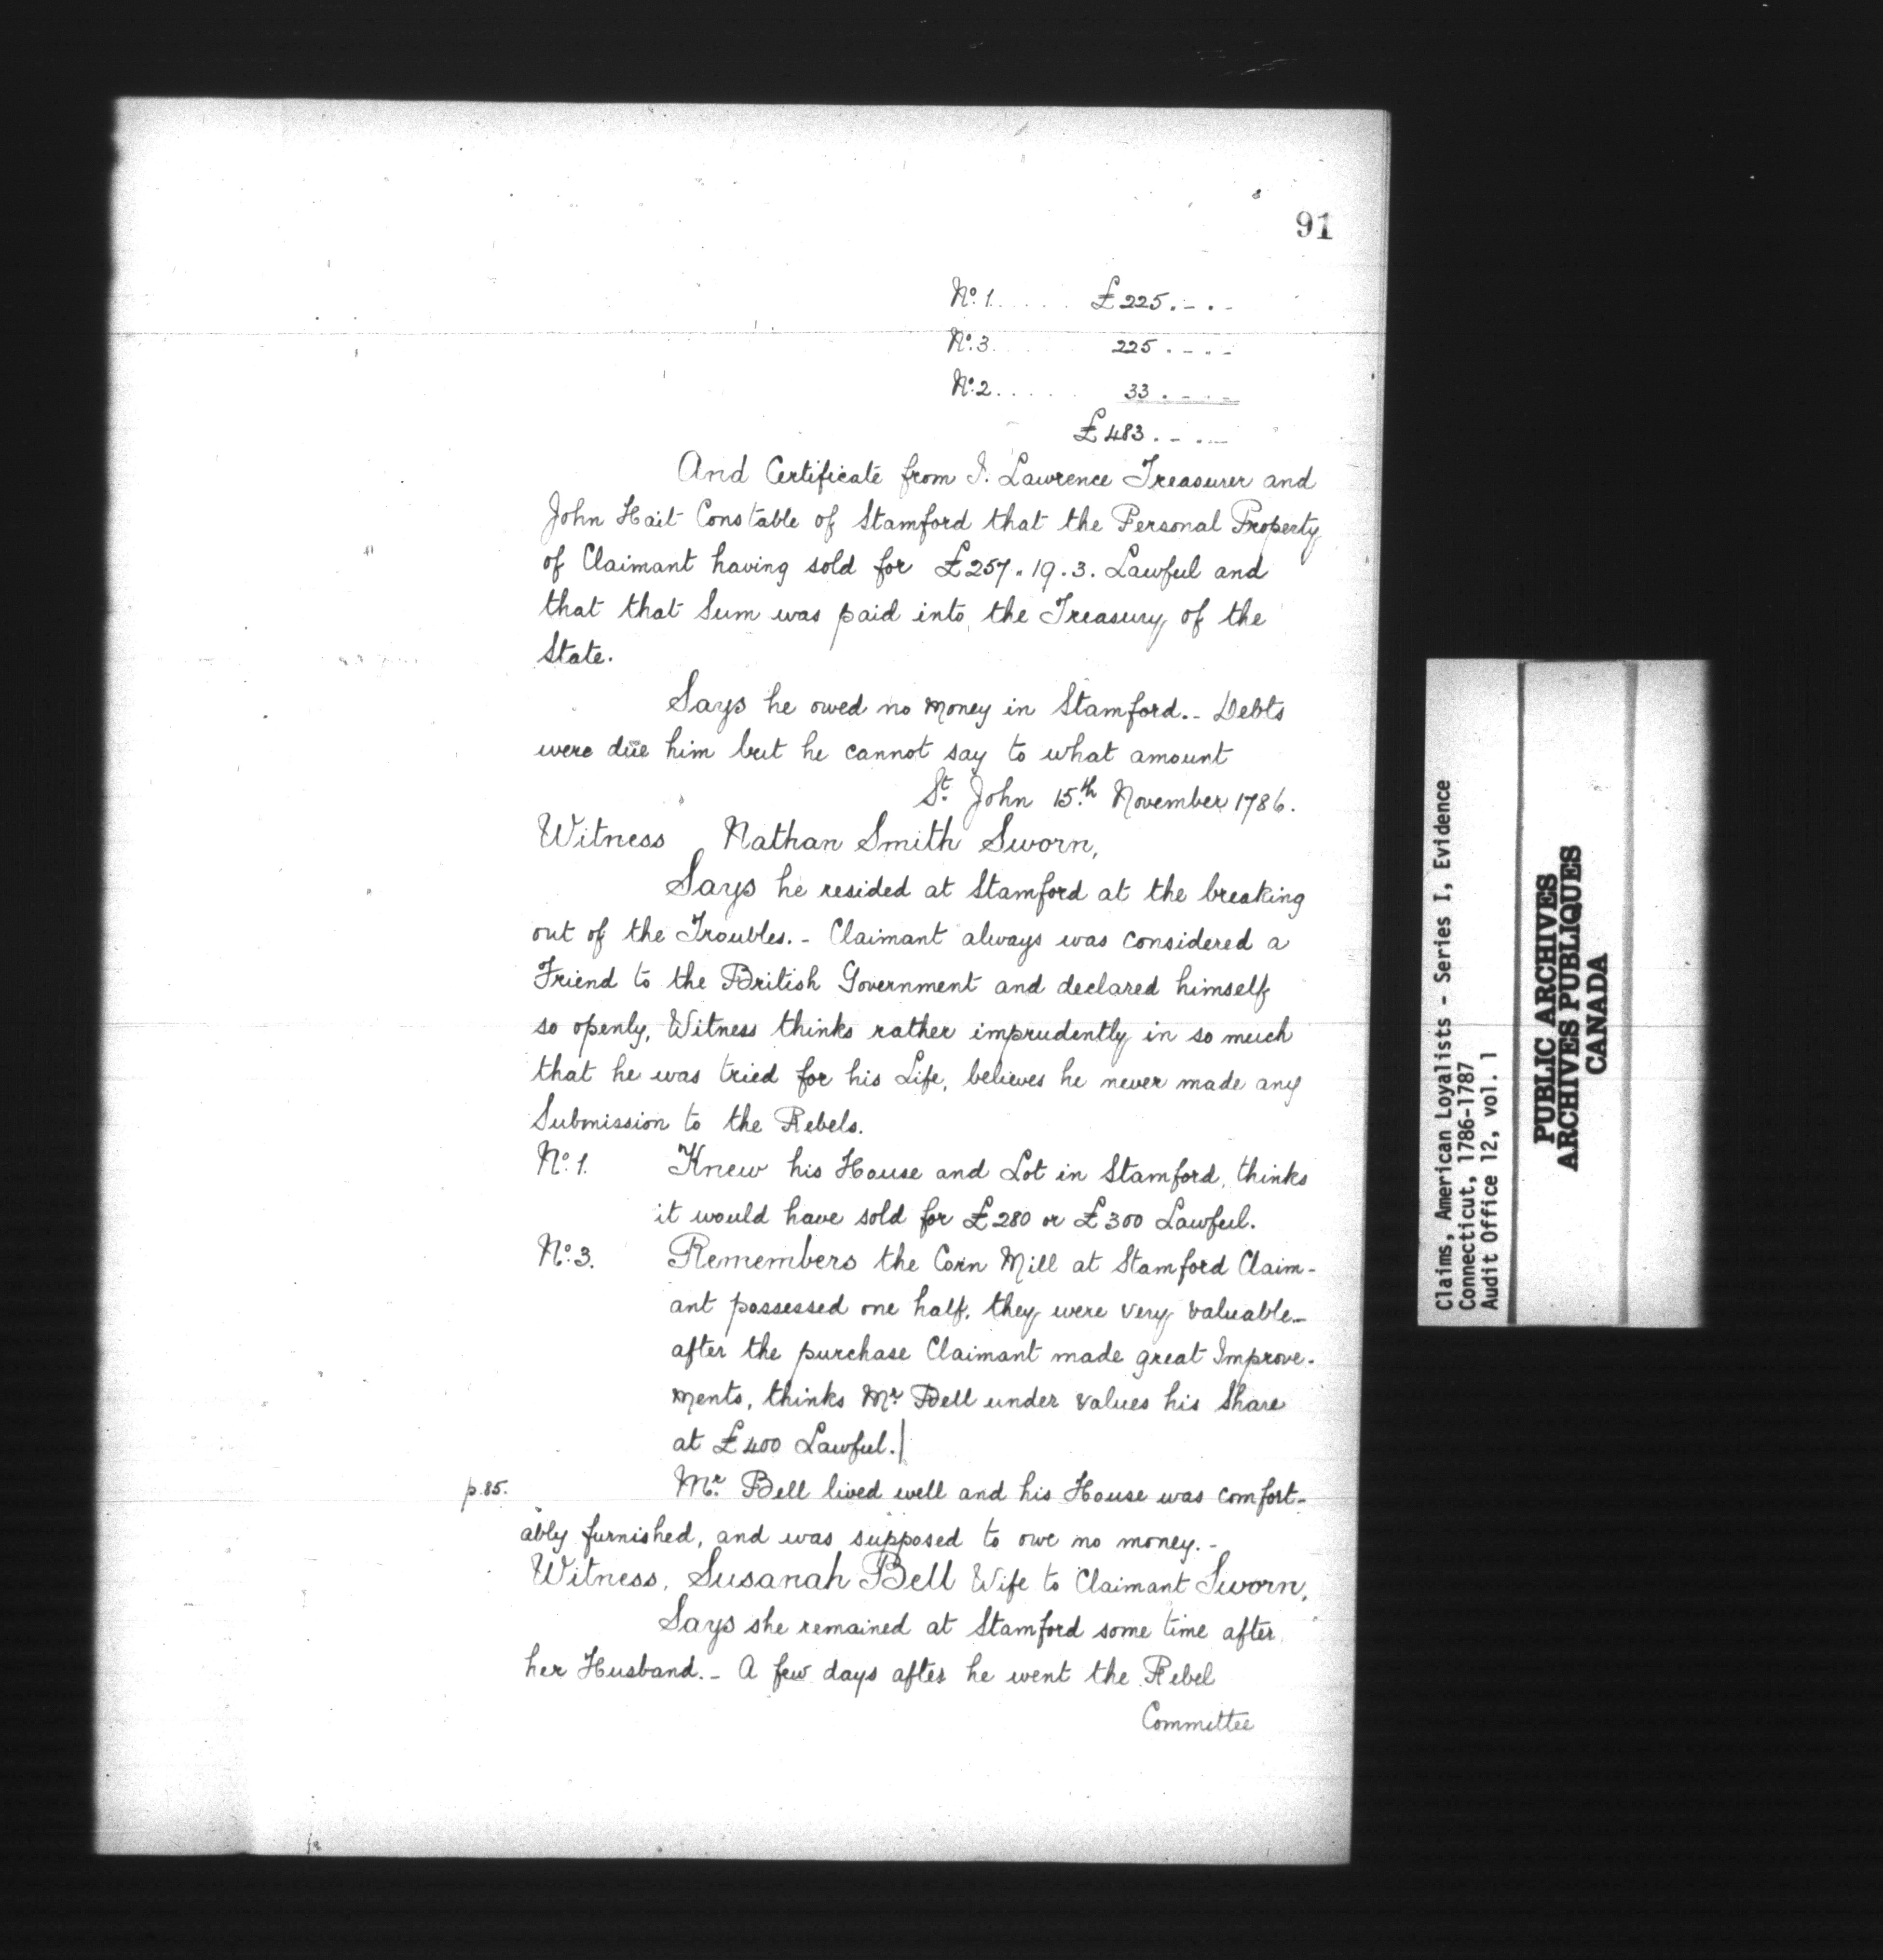 91
No. 1..... £225.-.-
No. 3..... 225.-.-
No. 2..... 33.-.-
£483.-.-
And Certificate from J. Lawrence Treasurer and
John Hait Constable of Stamford that the Personal Property
of Claimant having sold for £257.19.3. Lawful and
that that Sum was paid into the Treasury of the
State.
Says he owed no money in Stamford.- Debts
were due him but he cannot say to what amount
St. John 15th November 1786.
Witness Nathan Smith Sworn,
Says he resided at Stamford at the breaking
out of the Troubles.- Claimant always was considered a
Friend to the British Government and declared himself
so openly, Witness thinks rather imprudently in so much
that he was tried for his Life, believes he never made any
Submission to the Rebels.
No. 1. Knew his House and Lot in Stamford, thinks
it would have sold for £280 or £300 Lawful.
No. 3. Remembers the Corn Mill at Stamford Claim-
ant possessed one half, they were very valuable-
after the purchase Claimant made great Improve-
ments, thinks Mr. Bell under values his Share
at £400 Lawful.|
p.85. Mr. Bell lived well and his House was comfort-
ably furnished, and was supposed to owe no money.-
Witness, Susanah Bell Wife to Claimant Sworn,
Says she remained at Stamford some time after
her Husband.- A few days after he went the Rebel
Committee
Claims, American Loyalists - Series I, Evidence
Connecticut, 1786-1787
Audit Office 12, vol. 1
PUBLIC ARCHIVES
ARCHIVES PUBLIQUES
CANADA